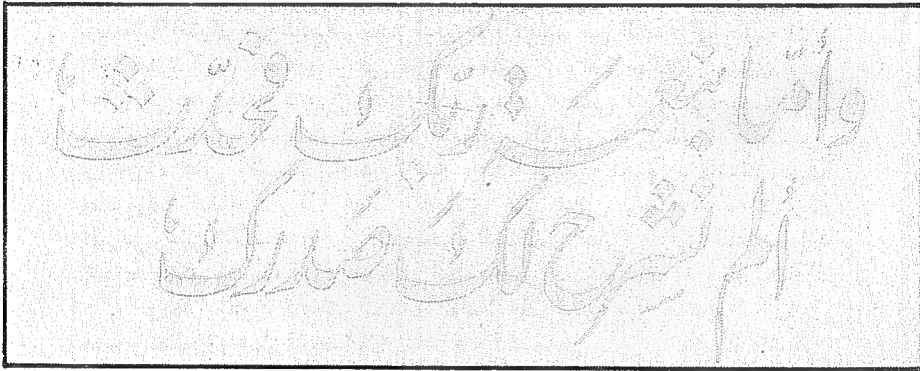 وَأَمَّا بِنِعْمَةِ رَبِّكَ فَحَدِّثْ
أَلَمْ نَشْرَحْ لَكَ صَدْرَكَ